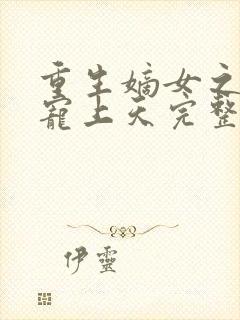 重生嫡女之
寵上天完整
伊靈